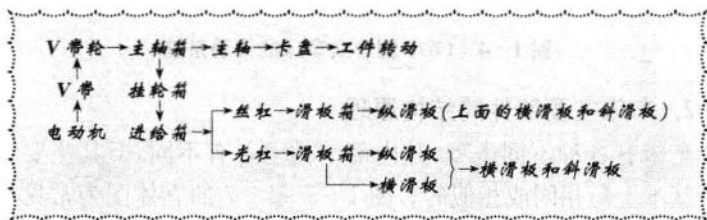 V带轮→主轴箱→主轴→卡盘→工件转动
V带 挂轮箱
电动机 进给箱 丝杠→滑板箱→纵滑板(上面的横滑板和斜滑板)
光杠→滑板箱→纵滑板 →横滑板和斜滑板
横滑板